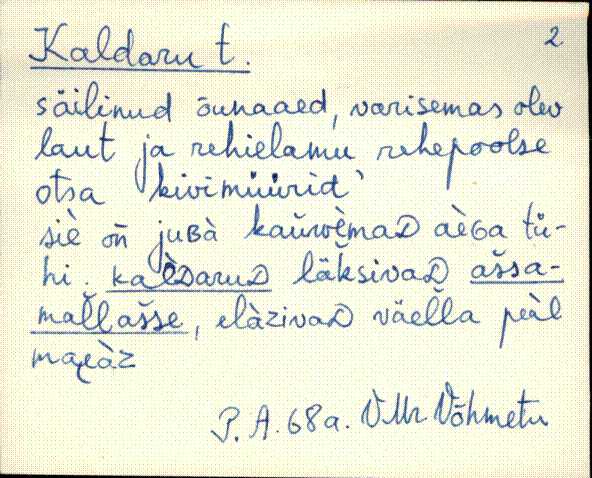 Kaldaru t. 2
säilinud õunaaed, varisemas olev
laut ja rehielamu rehepoolse
otsa kivimüürid'
siè oñ juʙà kaŭwèmaD aèGa tü-
hi. kaÈDaruD läksivaD aš̆sa-
mal̆lašse, elàzivaD väel̆la peàl
P.A. 68a. VMr Võhmetu